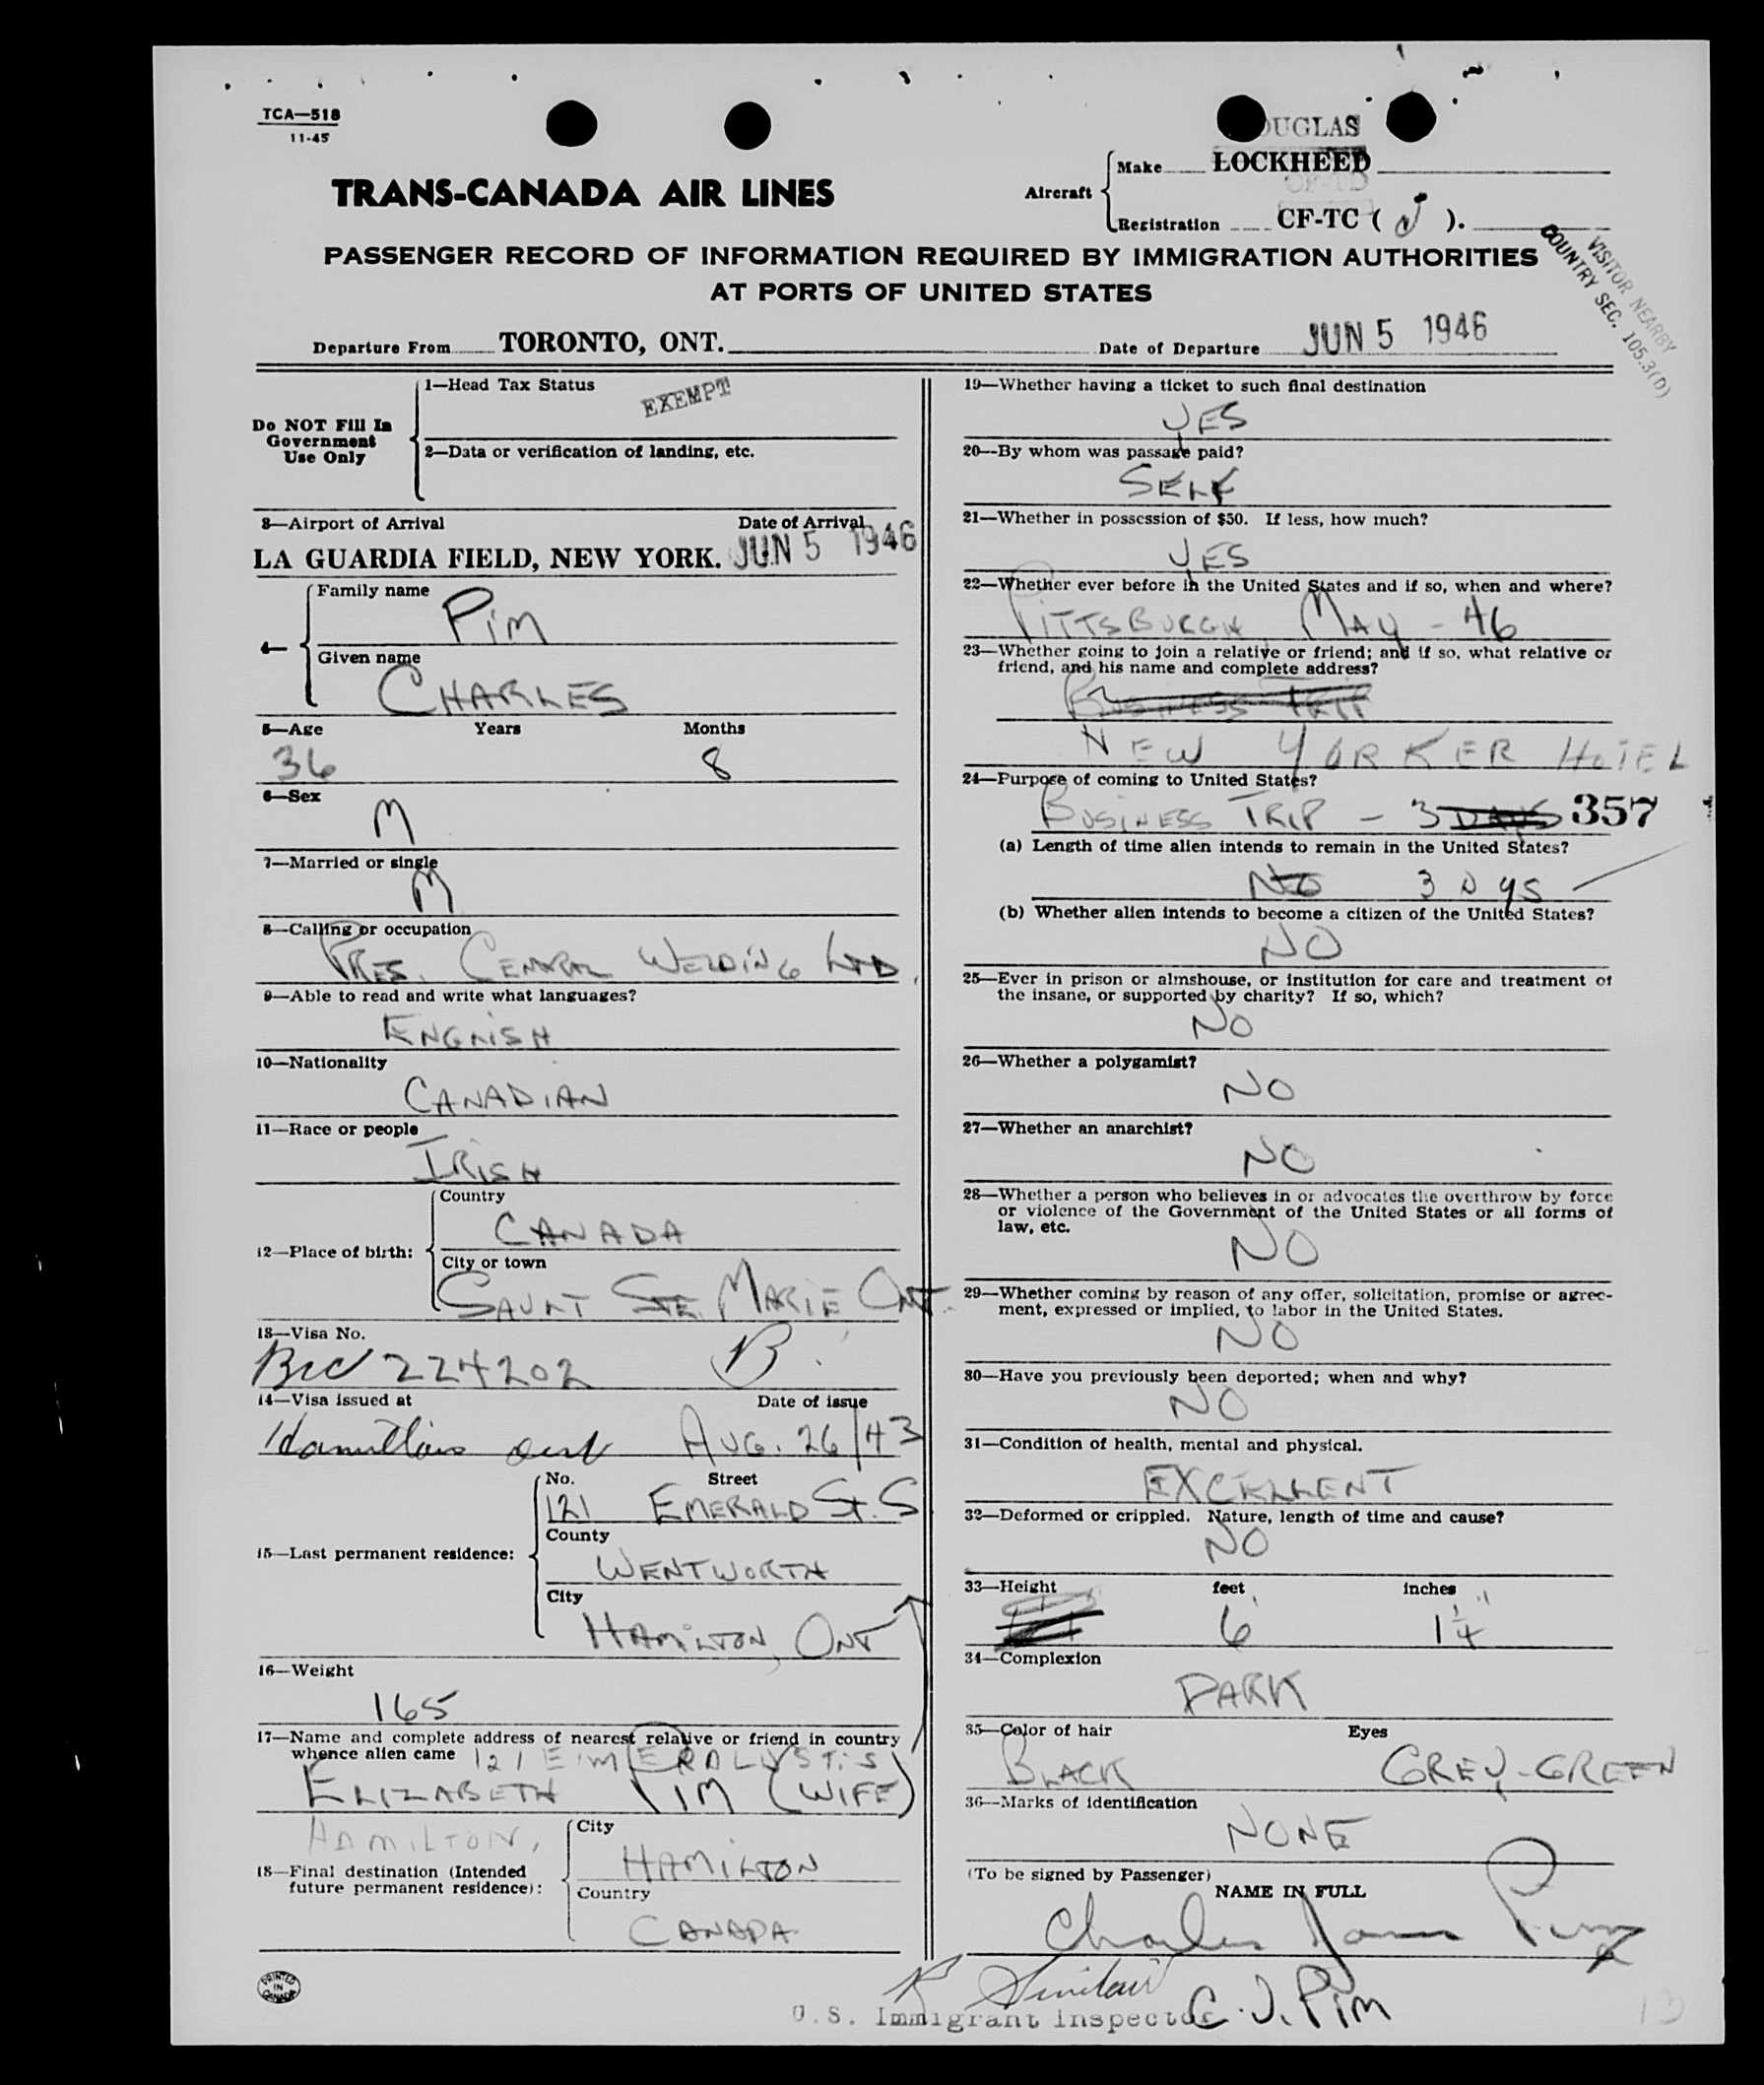 TCA—518
11-45
TRANS-CANADA AIR LINES
Aircraft
DOUGLAS
Make LOCKHEED
Registration CF-TC ( J ).
PASSENGER RECORD OF INFORMATION REQUIRED BY IMMIGRATION AUTHORITIES
AT PORTS OF UNITED STATES
VISITOR NEARBY
COUNTRY SEC. 105.3(D)
Departure From TORONTO, ONT.
Date of Departure JUN 5 1946
Do NOT Fill In
Government
Use Only
1—Head Tax Status
EXEMPT
2—Data or verification of landing, etc.
3—Airport of Arrival Date of Arrival
LA GUARDIA FIELD, NEW YORK. JUN 5 1946
4—
Family name
PIM
Given name
CHARLES
5—Age Years Months
36 8
6—Sex
M
7—Married or single
M
8—Calling or occupation
PRES. GENERAL WELDING LTD.
9—Able to read and write what languages?
ENGLISH
10—Nationality
CANADIAN
11—Race or people
IRISH
12—Place of birth:
Country
CANADA
City or town
SAULT STE. MARIE ONT.
13—Visa No.
BCC 224202 B.
14—Visa issued at Date of issue
Hamilton Ont AUG. 26/43
15—Last permanent residence:
No. Street
121 EMERALD St. S
County
WENTWORTH
City
HAMILTON, ONT
16—Weight
165
17—Name and complete address of nearest relative or friend in country
whence alien came 121 EMERALD ST. S
ELIZABETH PIM (WIFE)
HAMILTON,
18—Final destination (Intended
future permanent residence):
City
HAMILTON
Country
CANADA
PRINTED
IN
CANADA
19—Whether having a ticket to such final destination
YES
20—By whom was passage paid?
SELF
21—Whether in possession of $50. If less, how much?
YES
22—Whether ever before in the United States and if so, when and where?
PITTSBURGH, MAY - 46
23—Whether going to join a relative or friend; and if so, what relative or
friend, and his name and complete address?
BUSINESS TRIP
NEW YORKER HOTEL
24—Purpose of coming to United States?
BUSINESS TRIP - 3 DAYS 357
(a) Length of time alien intends to remain in the United States?
NO 3 DYS
(b) Whether alien intends to become a citizen of the United States?
NO
25—Ever in prison or almshouse, or institution for care and treatment of
the insane, or supported by charity? If so, which?
NO
26—Whether a polygamist?
NO
27—Whether an anarchist?
NO
28—Whether a person who believes in or advocates the overthrow by force
or violence of the Government of the United States or all forms of
law, etc.
NO
29—Whether coming by reason of any offer, solicitation, promise or agree-
ment, expressed or implied, to labor in the United States.
NO
30—Have you previously been deported; when and why?
NO
31—Condition of health, mental and physical.
EXCELLENT
32—Deformed or crippled. Nature, length of time and cause?
NO
33—Height feet inches
6' 1 1/4"
34—Complexion
DARK
35—Color of hair Eyes
BLACK GREY-GREEN
36—Marks of identification
NONE
(To be signed by Passenger)
NAME IN FULL
Charles James Pim
R Sinclair
U.S. Immigrant Inspector
C. J. PIM
13